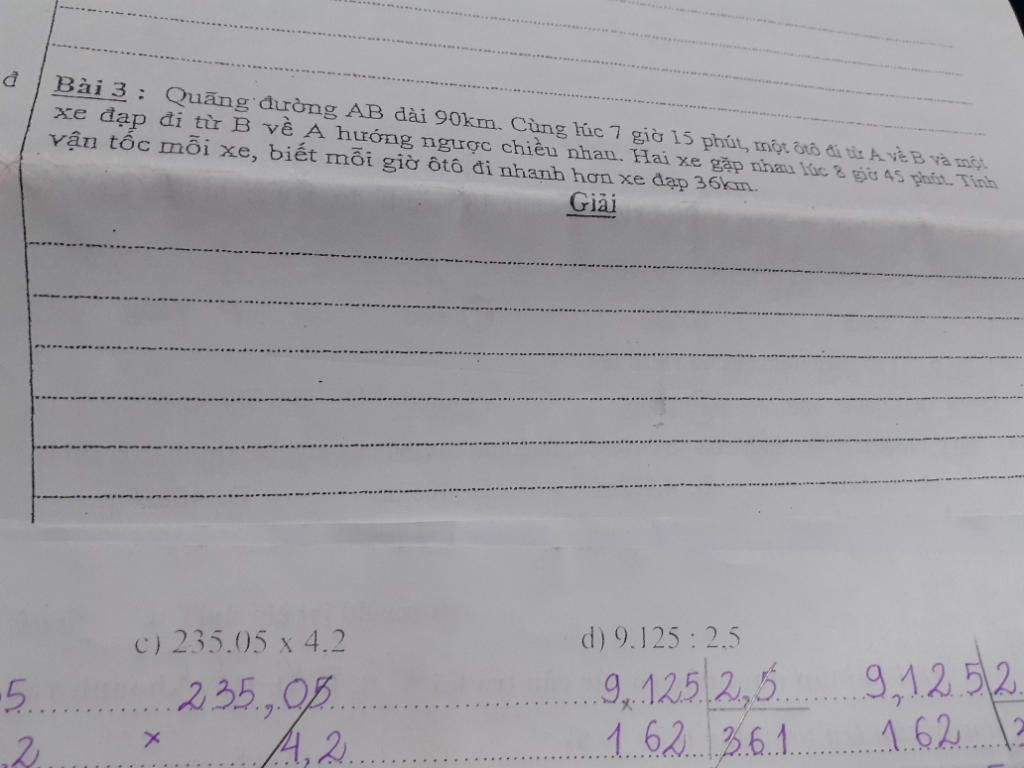 đ
Bài 3 : Quãng đường AB dài 90km. Cùng lúc 7 giờ 15 phút, một ôtô đi từ A về B và một
xe đạp đi từ B về A hướng ngược chiều nhau. Hai xe gặp nhau lúc 8 giờ 45 phút. Tính
vận tốc mỗi xe, biết mỗi giờ ôtô đi nhanh hơn xe đạp 36km.
Giải
c) 235,05 x 4,2 d) 9,125 : 2,5
5 235,05 9,125 2,5 9,125 2
,2 x 4,2 162 361 162 3